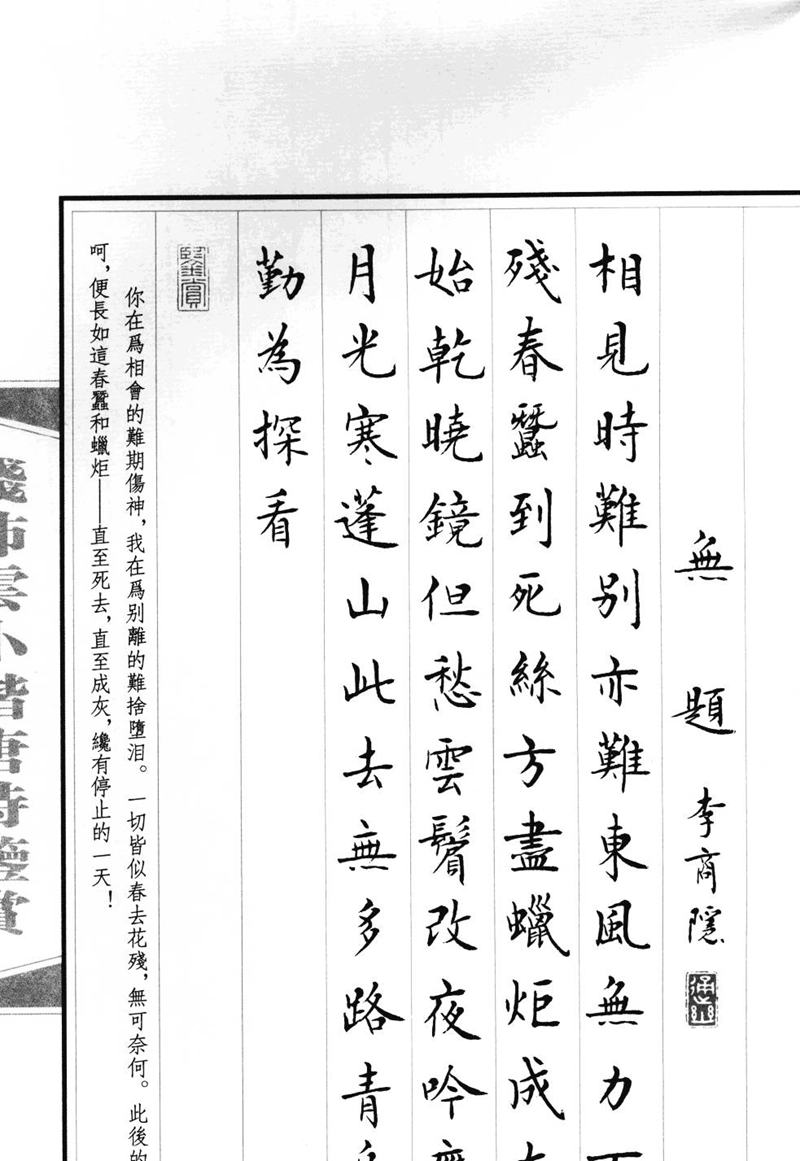 無題 李商隱
相見時難別亦難東風無力
殘春蠶到死絲方盡蠟炬成
始乾曉鏡但愁雲鬢改夜吟
月光寒蓬山此去無多路青
勤為探看
鑒賞
你在爲相會的難期傷神，我在爲别離的難捨墮泪。一切皆似春去花殘，無可奈何。此後的
呵，便長如這春蠶和蠟炬——直至死去，直至成灰，纔有停止的一天！
小楷唐詩鑒賞